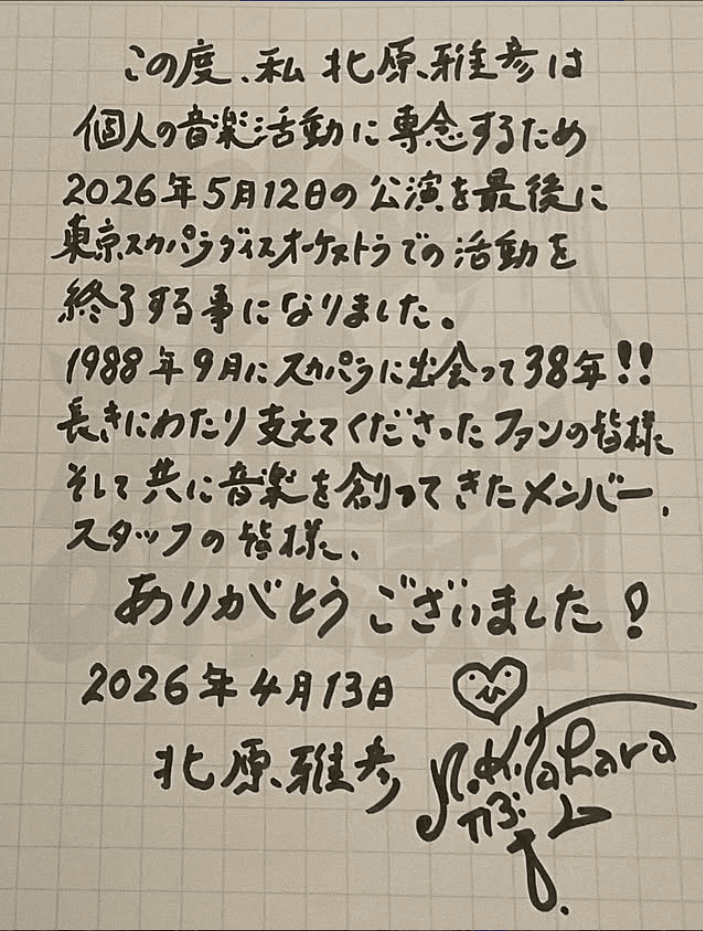 この度、私 北原雅彦は
個人の音楽活動に専念するため
2026年5月12日の公演を最後に
東京スカパラダイスオーケストラでの活動を
終了する事になりました。
1988年9月にスカパラに出会って38年!!
長きにわたり支えてくださったファンの皆様
そして共に音楽を創ってきたメンバー、
スタッフの皆様、
ありがとうございました!
2026年4月13日
北原雅彦